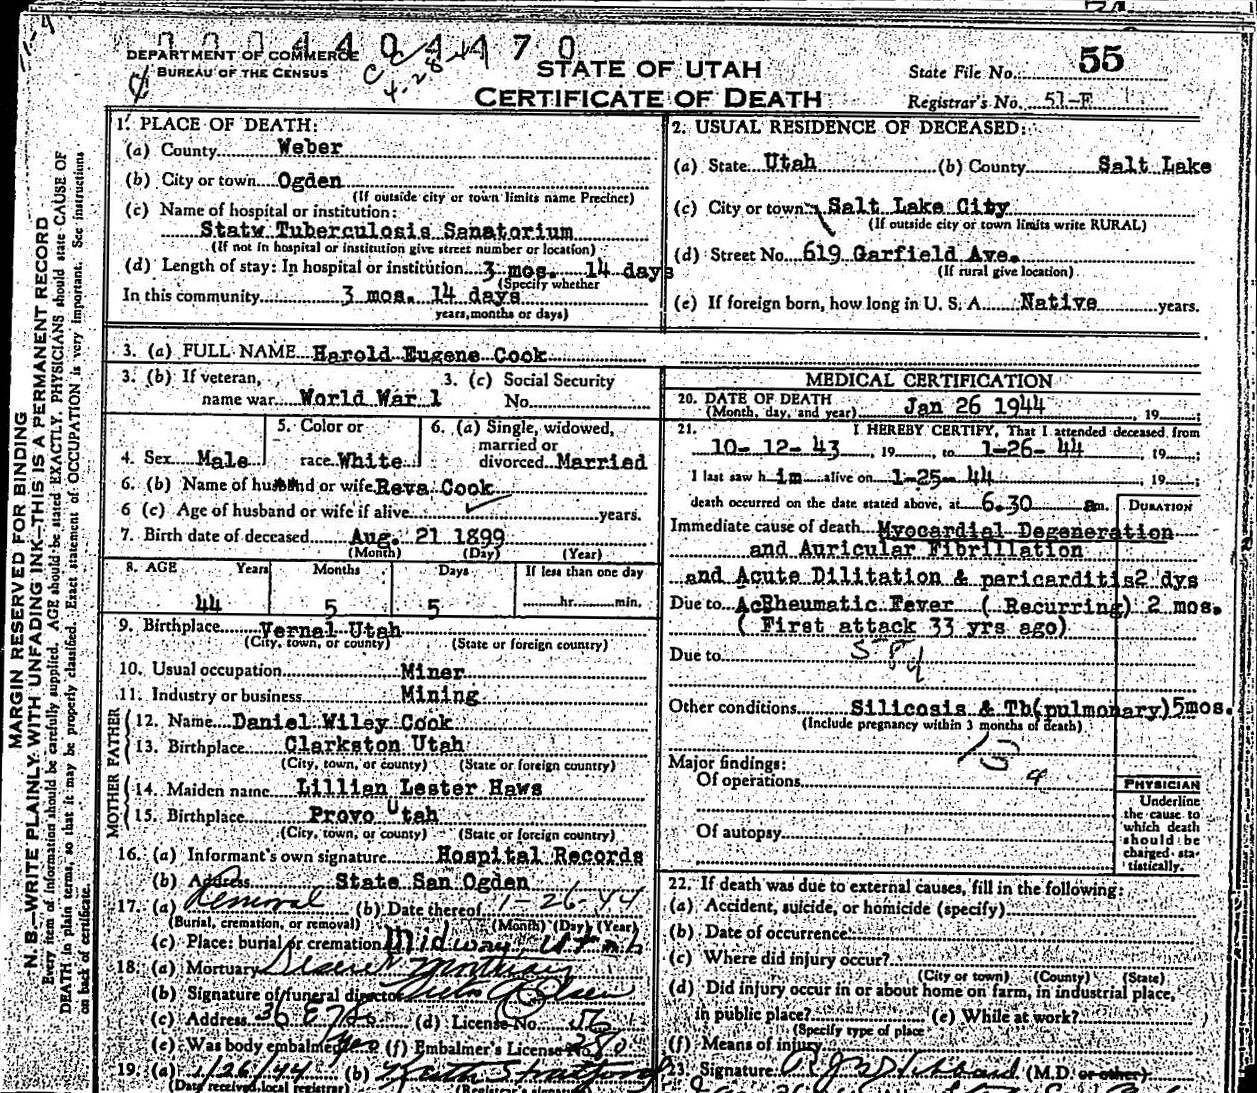 55
DEPARTMENT OF COMMERCE
BUREAU OF THE CENSUS
STATE OF UTAH
CERTIFICATE OF DEATH
State File No.
Registrar's No. 51-F
1. PLACE OF DEATH:
(a) County Weber
(b) City or town Ogden
(If outside city or town limits name Precinct)
(c) Name of hospital or institution:
Statw Tuberculosis Sanatorium
(If not in hospital or institution give street number or location)
(d) Length of stay: In hospital or institution 3 mos. 14 days
(Specify whether
In this community 3 mos. 14 days
years, months or days)
2. USUAL RESIDENCE OF DECEASED:
(a) State Utah (b) County Salt Lake
(c) City or town Salt Lake City
(If outside city or town limits write RURAL)
(d) Street No. 619 Garfield Ave.
(If rural give location)
(e) If foreign born, how long in U. S. A. Native years.
3. (a) FULL NAME Harold Eugene Cook
3. (b) If veteran, name war World War 1
3. (c) Social Security No.
4. Sex Male
5. Color or race White
6. (a) Single, widowed, married or divorced Married
6. (b) Name of husband or wife Reva Cook
6 (c) Age of husband or wife if alive years.
7. Birth date of deceased Aug. 21 1899
(Month) (Day) (Year)
8. AGE Years Months Days If less than one day
44 5 5 hr. min.
9. Birthplace Vernal Utah
(City, town, or county) (State or foreign country)
10. Usual occupation Miner
11. Industry or business Mining
FATHER
12. Name Daniel Wiley Cook
13. Birthplace Clarkston Utah
(City, town, or county) (State or foreign country)
MOTHER
14. Maiden name Lillian Lester Haws
15. Birthplace Provo Utah
(City, town, or county) (State or foreign country)
16. (a) Informant's own signature Hospital Records
(b) Address State San Ogden
17. (a) Removal (b) Date thereof 1-26-44
(Burial, cremation, or removal) (Month) (Day) (Year)
(c) Place: burial or cremation Midway, Utah
18. (a) Mortuary Deseret Mortuary
(b) Signature of funeral director
(c) Address 36 E 7 So (d) License No. 56
(e) Was body embalmed yes (f) Embalmer's License No. 280
19. (a) 1/26/44 (b) Keith Stratford
(Date received local registrar) (Registrar's signature)
MEDICAL CERTIFICATION
20. DATE OF DEATH
(Month, day, and year) Jan 26 1944, 19
21. I HEREBY CERTIFY, That I attended deceased from
10-12-43, 19, to 1-26-44, 19;
I last saw him alive on 1-25-44, 19;
death occurred on the date stated above, at 6.30 am.
DURATION
Immediate cause of death Myocardial Degeneration
and Auricular Fibrillation
and Acute Dilitation & paricarditis 2 dys
Due to Ac Rheumatic Fever (Recurring) 2 mos.
(First attack 33 yrs ago)
Due to
Other conditions Silicosis & Tb(pulmonary) 5mos.
(Include pregnancy within 3 months of death)
Major findings:
Of operations
Of autopsy
PHYSICIAN
Underline
the cause to
which death
should be
charged sta-
tistically.
22. If death was due to external causes, fill in the following:
(a) Accident, suicide, or homicide (specify)
(b) Date of occurrence
(c) Where did injury occur?
(City or town) (County) (State)
(d) Did injury occur in or about home on farm, in industrial place,
in public place? (e) While at work?
(Specify type of place
(f) Means of injury
23. Signature (M.D. or other)
MARGIN RESERVED FOR BINDING
N. B.—WRITE PLAINLY, WITH UNFADING INK—THIS IS A PERMANENT RECORD
Every item of information should be carefully supplied. AGE should be stated EXACTLY. PHYSICIANS should state CAUSE OF
DEATH in plain terms, so that it may be properly classified. Exact statement of OCCUPATION is very important. See instructions
on back of certificate.